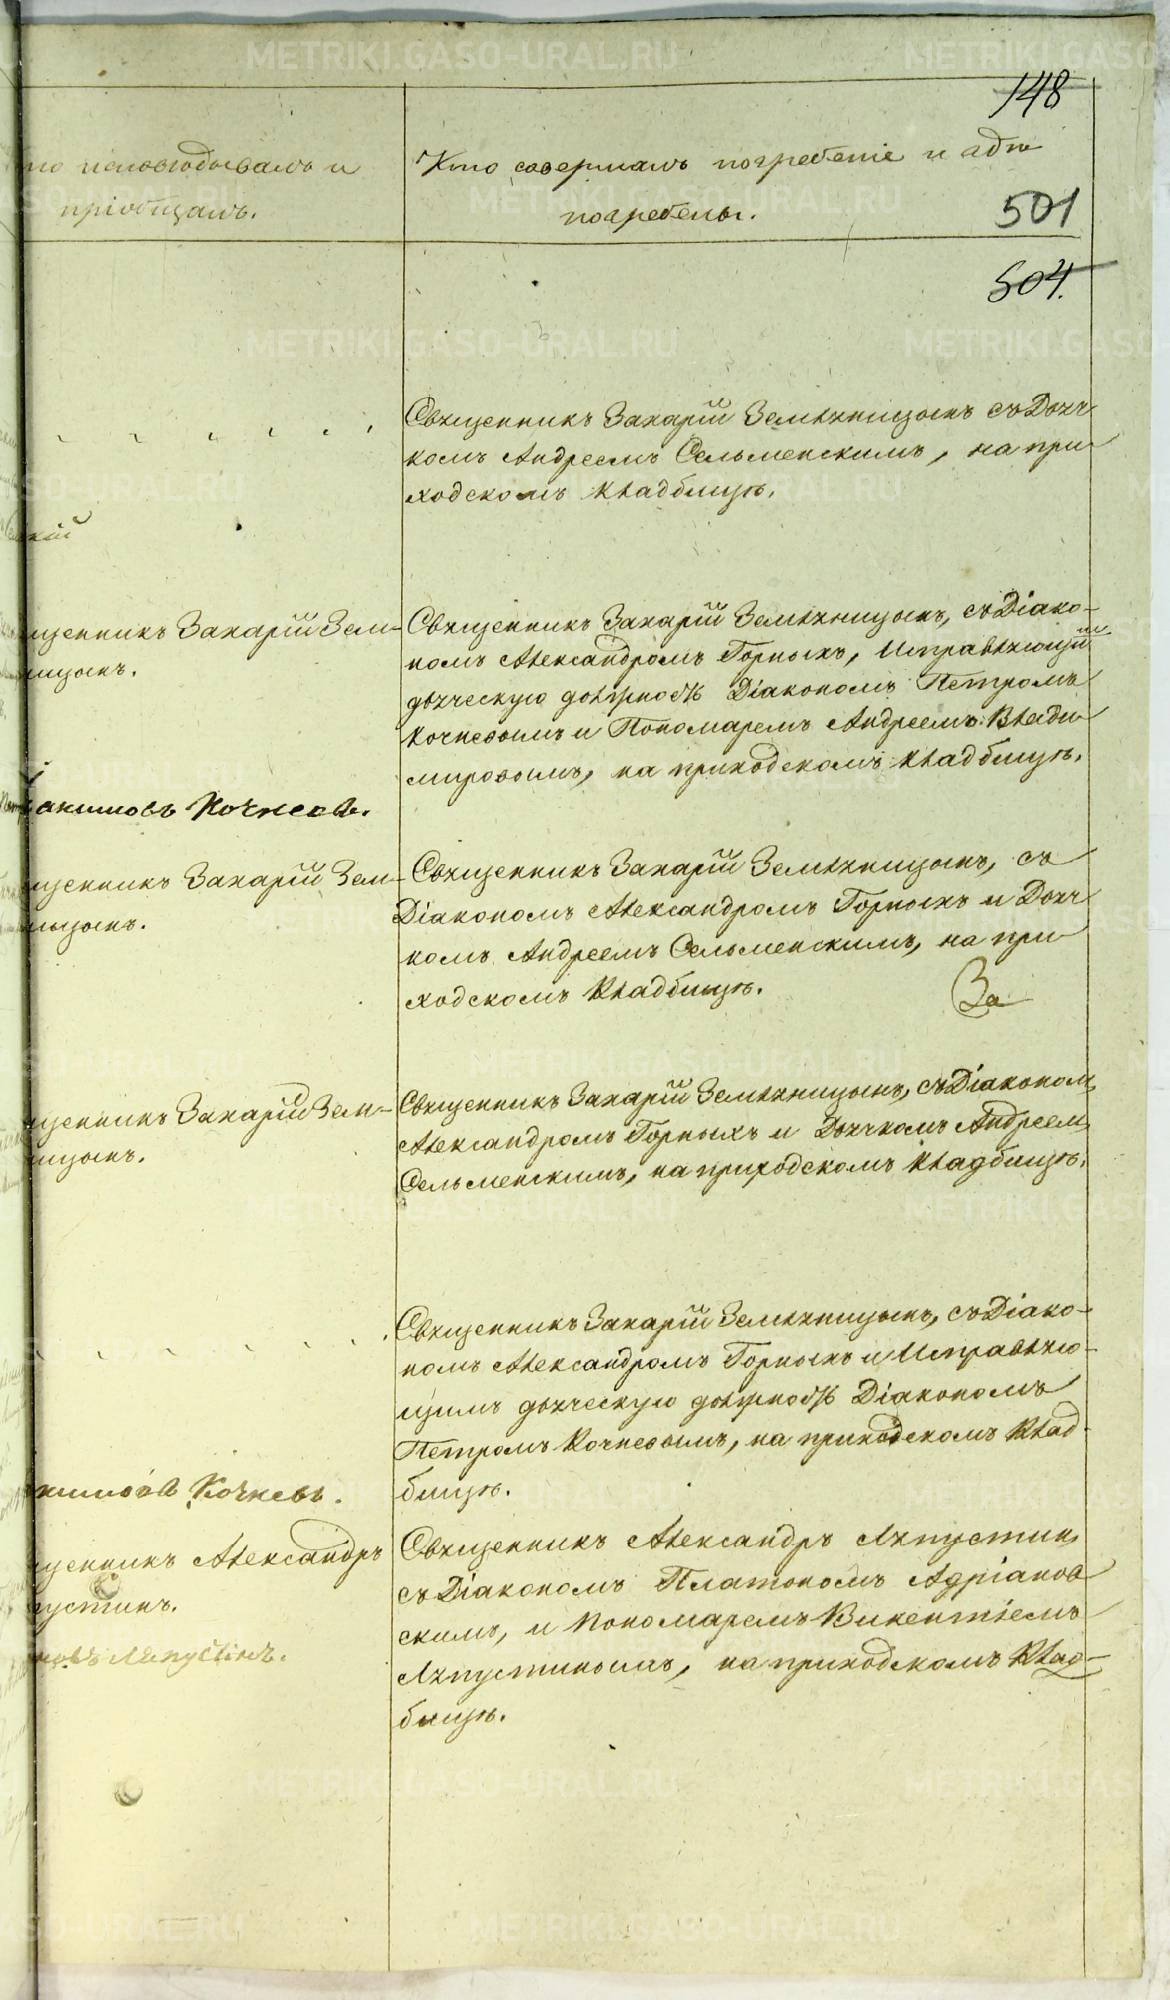 148
Кто совершалъ погребеніе и гдѣ
погребены.
501
504.
исповѣдывалъ и
пріобщалъ.
Священникъ Захарій Земляницынъ съ Дьяч-
комъ Андреемъ Сельменскимъ, на при-
ходскомъ кладбищѣ.
кій
щенникъ Захарій Зем-
ницынъ.
Священникъ Захарій Земляницынъ, съ Діако-
номъ Александромъ Горныхъ, Исправляющимъ
дьяческую должность Діакономъ Петромъ
Кочневымъ и Пономаремъ Андреемъ Влади-
мировымъ, на приходскомъ кладбищѣ.
акимовъ Кочневъ.
щенникъ Захарій Зем-
ницынъ.
Священникъ Захарій Земляницынъ, съ
Діакономъ Александромъ Горныхъ и Дьяч-
комъ Андреемъ Сельменскимъ, на при-
ходскомъ Кладбищѣ.
За
щенникъ Захарій Зем-
ницынъ.
Священникъ Захарій Земляницынъ, съ Діакономъ
Александромъ Горныхъ и Дьячкомъ Андреем
Сельменскимъ, на приходскомъ кладбищѣ.
Священникъ Захарій Земляницынъ, съ Діако-
номъ Александромъ Горныхъ и Исправляю-
щимъ дьяческую должность Діакономъ
Петромъ Кочневымъ, на приходскомъ Клад-
бищѣ.
кимовъ Кочневъ.
щенникъ Александръ
пустинъ.
новъ Ляпустинъ.
Священникъ Александръ Ляпустинъ
съ Діакономъ Платономъ Адріанов
скимъ, и Пономаремъ Викентіемъ
Ляпустинымъ, на приходскомъ Клад-
бищѣ.
METRIKI.GASO-URAL.RU